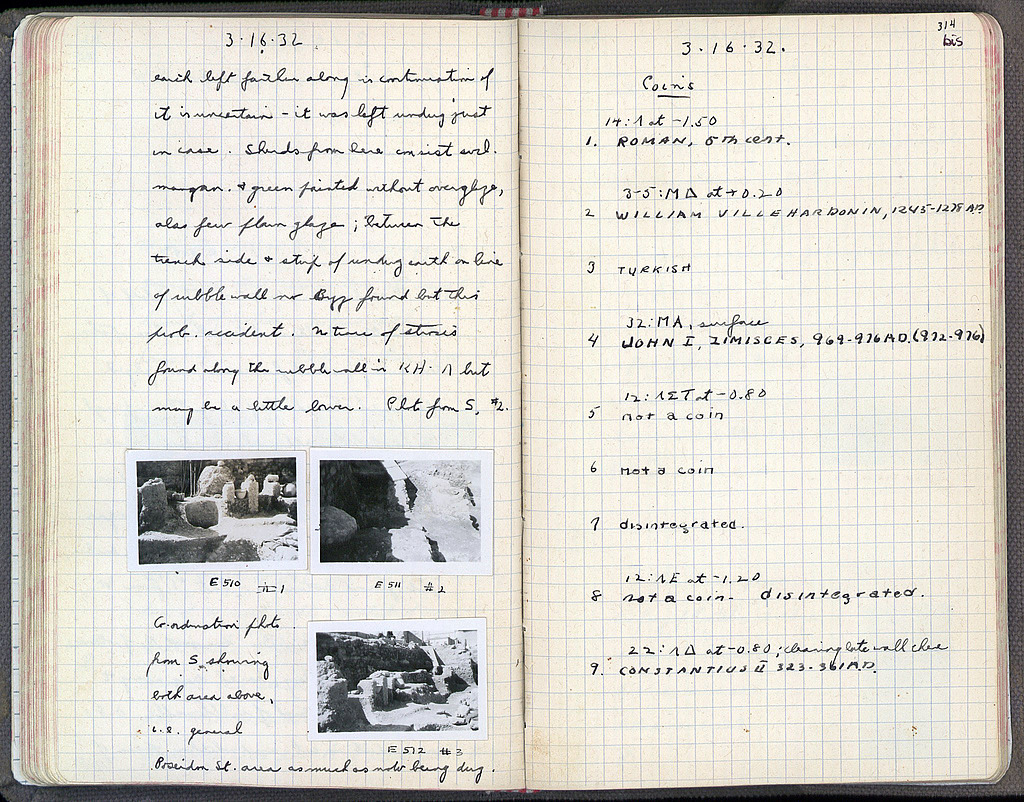 3·16·32
earth left farther along is continuation of
it is uncertain - it was left undug just
in case. Sherds from here consist
mangan. & green painted without overglaze,
also few plain glaze; between the
trench side & strip of undug earth on line
of rubble wall no Byz found but this
prob. accident. No trace of
found along the rubble wall in KH·Λ but
may be a little lower. Photo from S, #2.
E 510 #1
E 511 #2
Co-ordination photo
from S, showing
both area above,
i.e. general
E 512 #3
Poseidon St. area as much as now being dug.
314
bis
3·16·32.
Coins
14:Λ at -1.50
1. ROMAN, 5th cent.
3-5:MΔ at +0.20
2 WILLIAM VILLEHARDONIN, 1245-1278 AD
3 TURKISH
32:MA, surface
4 JOHN I, ZIMISCES, 969-976 AD. (972-976)
12:ΛΣΤ at -0.80
5 not a coin
6 not a coin
7 disintegrated.
12:ΛE at -1.20
8 not a coin - disintegrated.
22:ΛΔ at -0.80; clearing late wall
9. CONSTANTIUS II 323-361 AD.